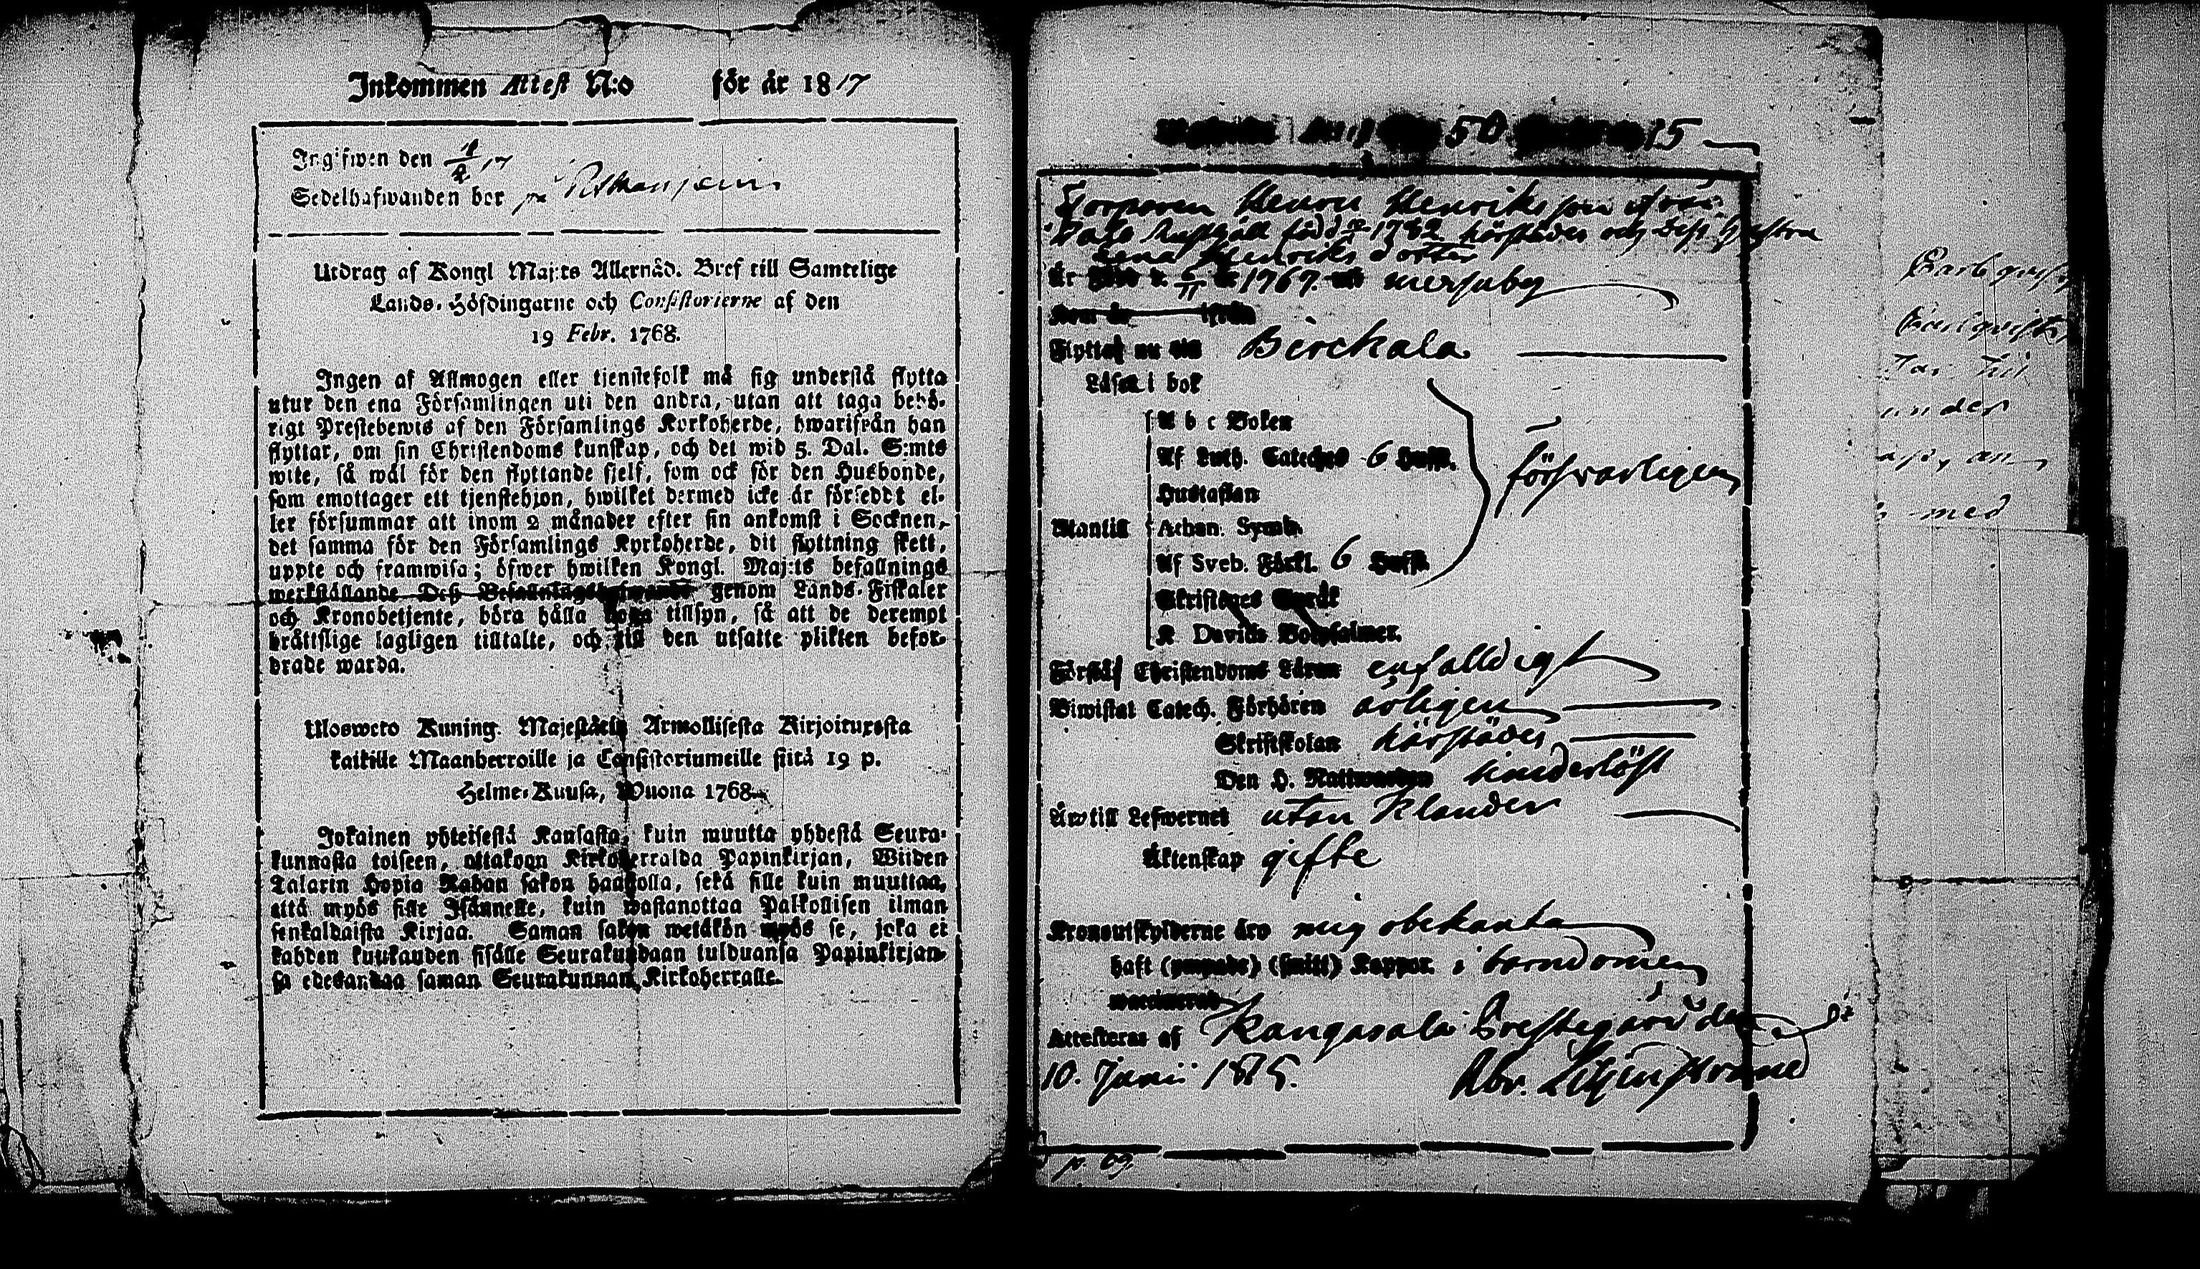 Inkommen Attest N:o för år 1817
Ingifwen den 4/2 17
Sedelhafwanden bor på
Utdrag af Kongl Maj:ts Allernåd. Bref till Samtelige
Lands-Höfdingarne och Consistorierne af den
19 Febr. 1768.
Ingen af Allmogen eller tjenstefolk må sig understå flytta
utur den ena Församlingen uti den andra, utan att taga behö-
rigt Prestebewis af den Församlings Kyrkoherde, hwarifrån han
flyttar, om sin Christendoms kunskap, och det wid 5. Dal. S:mts
wite, så wäl för den flyttande sjelf, som ock för den Husbonde,
som emottager ett tjenstehjon, hwilket dermed icke är förseddt el-
ler försummar att inom 2 månader efter sin ankomst i Socknen,
det samma för den Församlings Kyrkoherde, dit flyttning skett,
uppte och framwisa; öfwer hwilken Kongl. Maj:ts befallnings
werkställande Deß Befallningshafwande genom Lands-Fiskaler
och Kronobetjente, böra hålla noga tillsyn, så att de deremot
bråttslige lagligen tilltalte, och till den utsatte plikten befor-
drade warda.
Ulosweto Kuning. Majestätin Armollisesta Kirjoituxesta
kaikille Maanherroille ja Consistoriumeille siitä 19 p.
Helme-Kuusa, Wuona 1768.
Jokainen yhteisestä Kansasta, kuin muutta yhdestä Seura-
kunnasta toiseen, ottakoon Kirkoherralda Papinkirjan, Wiiden
Talarin Hopia Rahan sakon haastolla, sekä sille kuin muuttaa,
että myös sille Isännelle, kuin wastanottaa Palkollisen ilman
senkaldaista Kirjaa. Saman sakon wetäkön myös se, joka ei
kahden kuukauden sisälle Seurakundaan tulduansa Papinkirjan-
sa edesandaa saman Seurakunnan Kirkoherralle.
50 15
Torparen Henric Henriksson ifrån
född 1782 härstädes och Deß Hustru
Lena Henriks dotter
Är Född d. 6/11 år 1767
Kom år ifrån
Flyttar nu till Birckala
Läser i bok
A b c Boken
Af Luth. Cateches 6 Hufst.
försvarligen
Hustaflan
Utantill
Athan. Symb.
Af Sveb. Förkl. 6 Hufst.
Skriftenes Språk
K Davids Botpsalmer.
Förstår Christendoms Läran enfalldigt
Biwistat Catech. Förhören årligen
Skriftskolan härstädes
Den H. Nattwarden
Är till Lefwernet utan klander
Äktenskap gifte
Kronoutskylderne äro mig obekanta
haft (ympade) (smitt) Koppor. i barndomen
waccinerad
Attesteras af Kangasala Prestegård den
10. Junii 1815.
p. 69.
Carlqvist
Tar Til
under
med